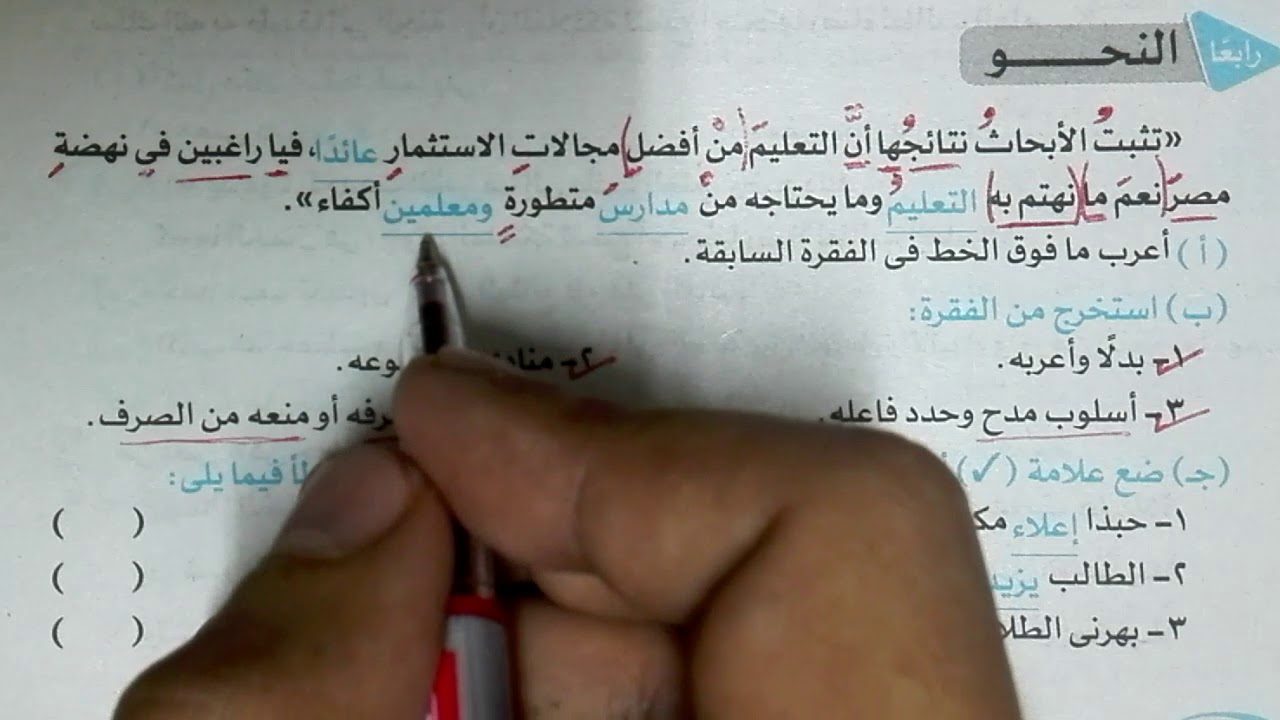 رابعًا
النحـــــو
«تثبتُ الأبحاثُ نتائجُها أنَّ التعليمَ منْ أفضلِ مجالاتِ الاستثمارِ عائدًا، فيا راغبين في نهضةِ
مصرَ نعمَ ما نهتم به التعليمُ وما يحتاجه منْ مدارسَ متطورةٍ ومعلمين أكفاء».
(أ) أعرب ما فوق الخط فى الفقرة السابقة.
(ب) استخرج من الفقرة:
١- بدلًا وأعربه.
٢-
٣- أسلوب مدح وحدد فاعله.
أو منعه من الصرف.
(جـ) ضع علامة (✓)
فيما يلى:
١- حبذا إعلاء ( )
٢- الطالب يزيد ( )
٣- بهرنى ( )